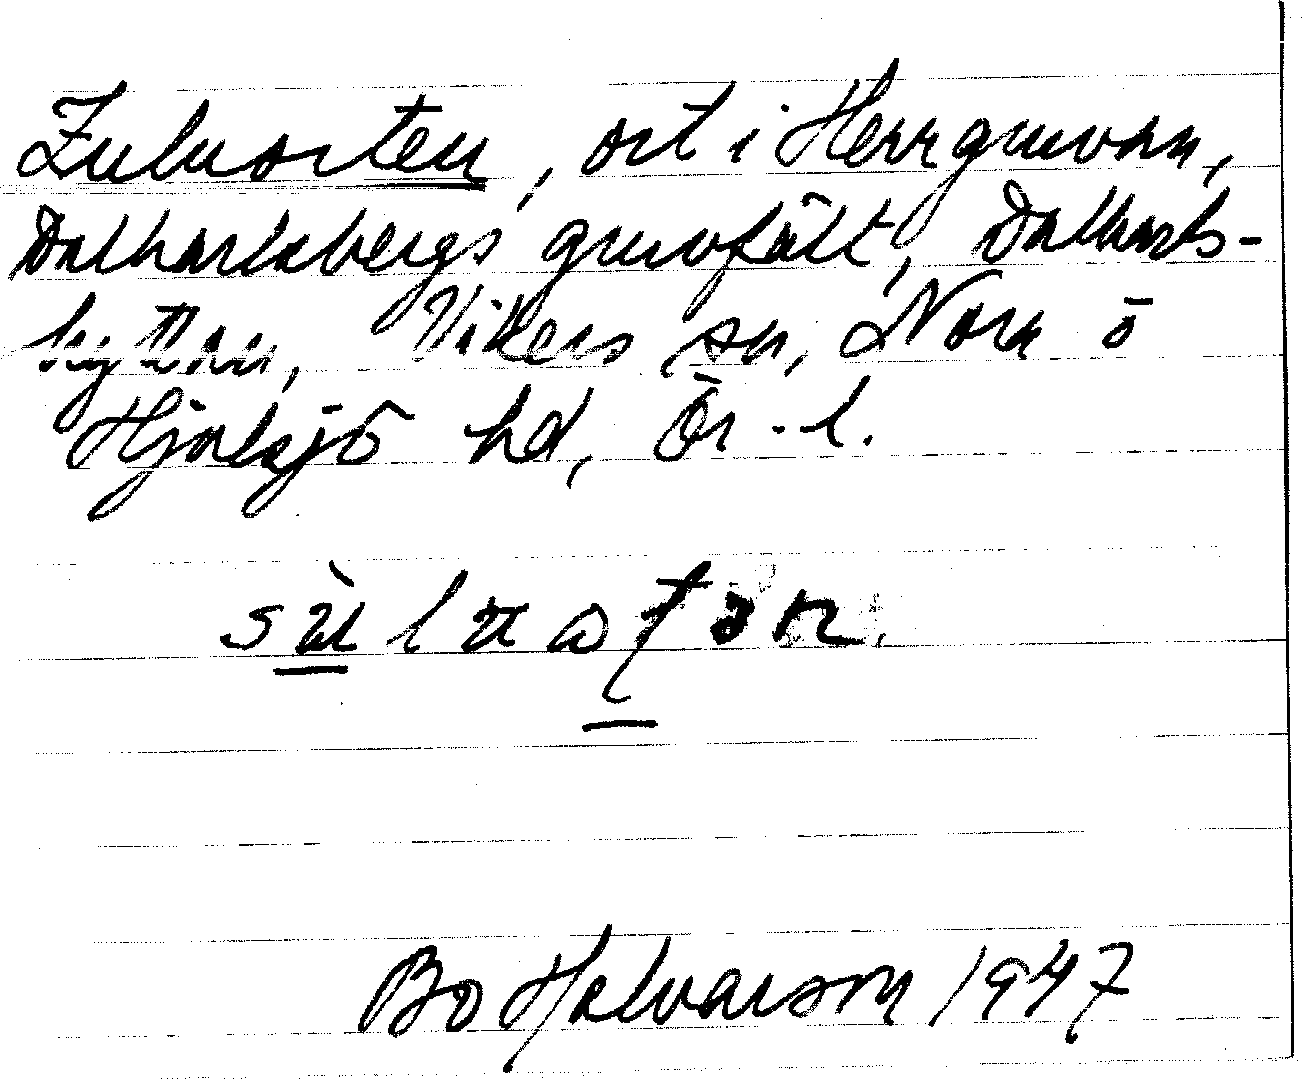 Zuluorten, ort i Herrgruvan,
Dalkarlsbergs gruvfält, Dalkarls-
hyttan, Vikers sn, Nora o
Hjulsjö hd, Ör. l.
Bo Halvarson 1947